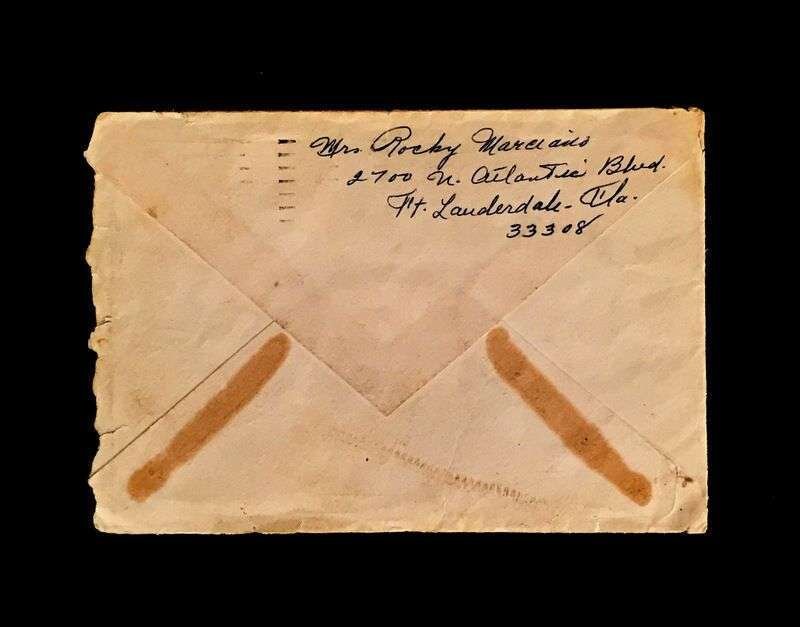 Mrs. Rocky Marciano
2700 N. Atlantic Blvd.
Ft. Lauderdale - Fla.
33308